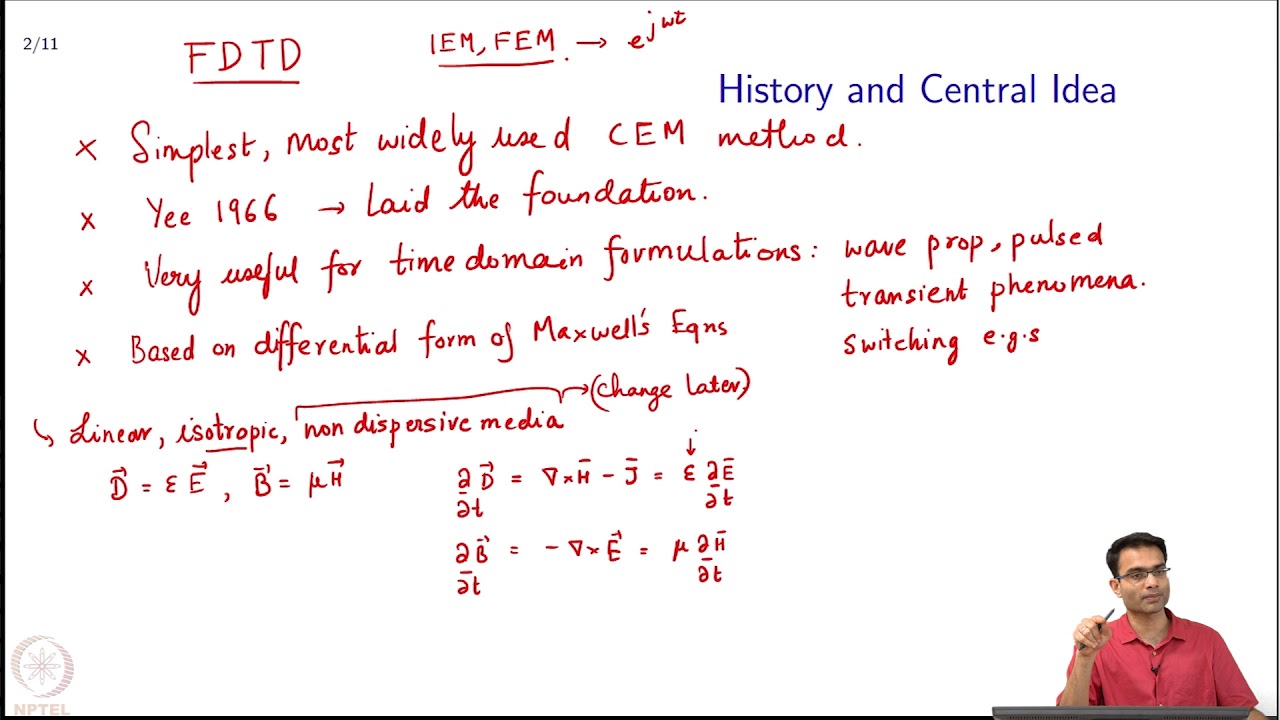 2/11
FDTD
IEM, FEM. → e^{jωt}
History and Central Idea
× Simplest, most widely used CEM method.
× Yee 1966 → Laid the foundation.
× Very useful for time domain formulations: wave prop, pulsed
transient phenomena.
switching e.g.s
× Based on differential form of Maxwell's Eqns
(change later)
↳ Linear, isotropic, non dispersive media →
D⃗ = ε E⃗, B⃗ = μ H⃗
∂/∂t D⃗ = ∇×H̄ − J̄ = ε ∂Ē/∂t
∂/∂t B⃗ = −∇×E⃗ = μ ∂H̄/∂t
NPTEL